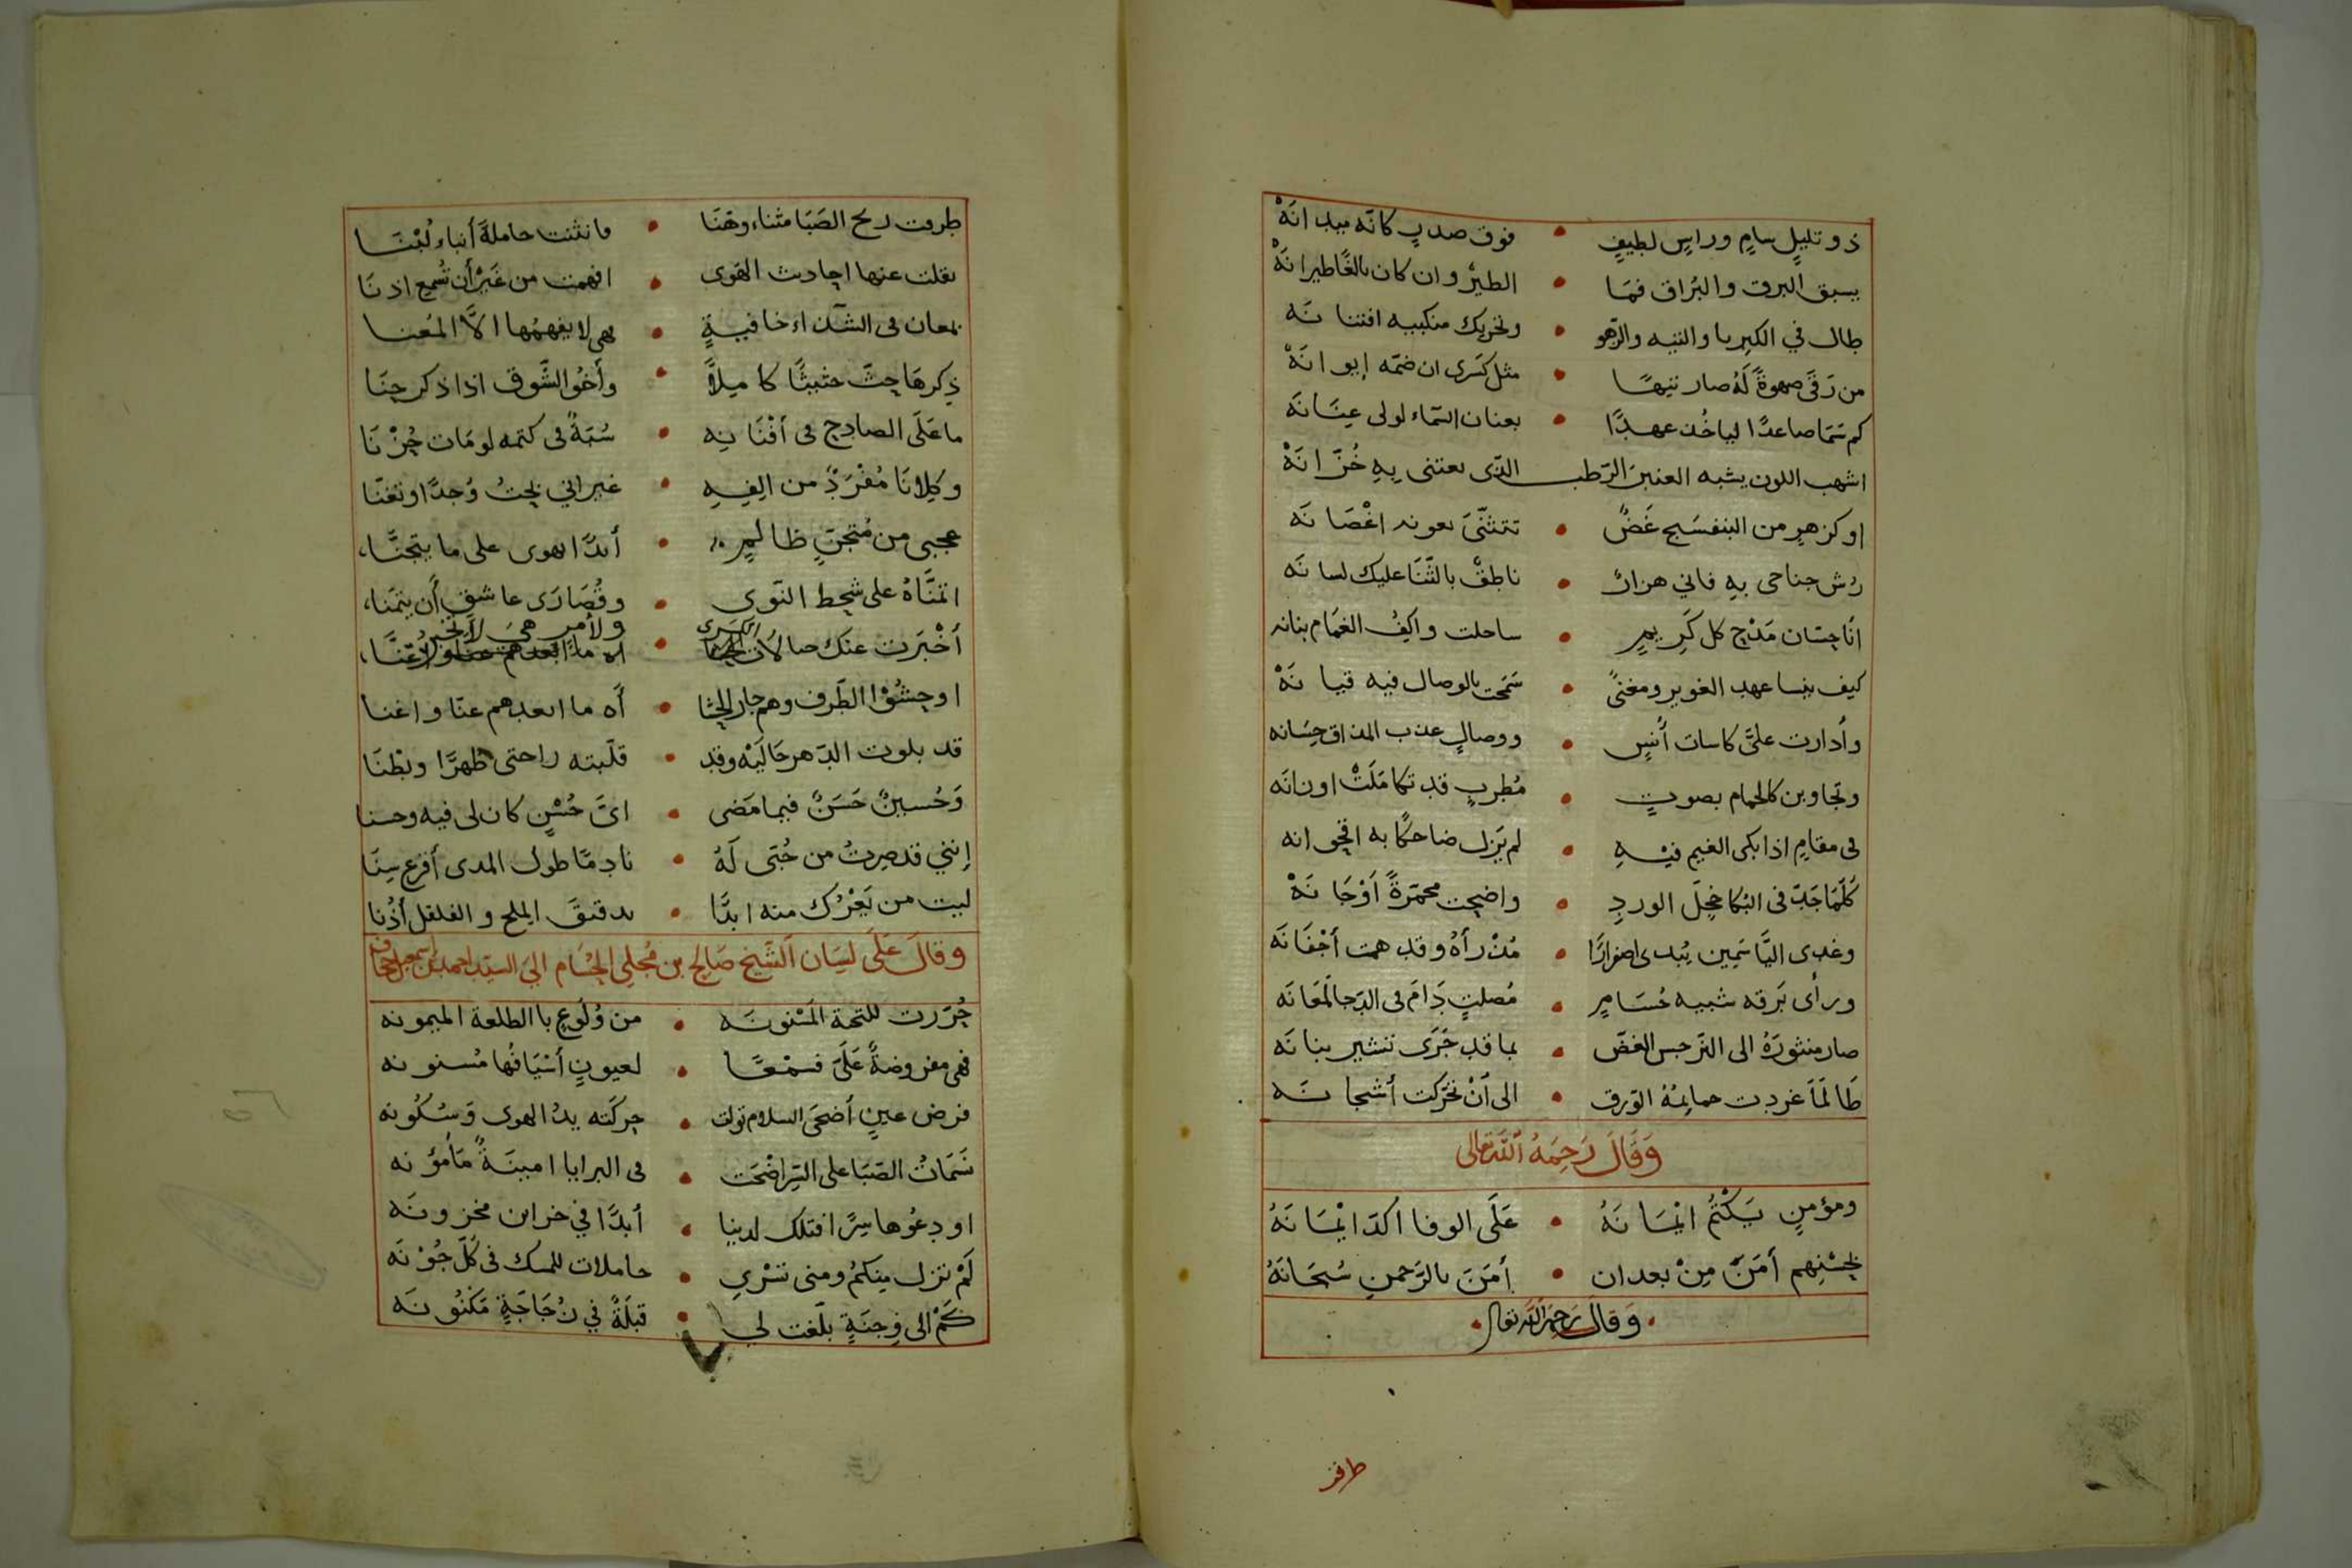 ذو تليلٍ سامٍ وراسٍ لطيفٍ • فوق صدرٍ كانّه ميدانَهْ
يسبق البرق والبُراق فمَا • الطيرُ وان كان بالغًا طيرانَهْ
طال في الكبريا والتيه والزّهو • وتحريك منكبيه افتنانَه
من رَقَى صهوةً لَهُ صار تيهًا • مثل كسرى ان ضمّه إيوانَهْ
كم سَمَا صاعدًا لياخُذ عهدًا • بعنان السّماء لولى عِنَانَه
اشهب اللون يشبه العنبرَ الرّطب الذى يعتنى بِهِ خُزّانَهْ
او كزهرٍ من البنفسَج غَضًّ • تتثنّىَ بعوده اغْصَانَه
رُش جناحى بِهِ فاني هزارٌ • ناطقٌ بالثّنَا عليك لسانَه
انَا حسّان مَدْح كل كَرِيمٍ • ساحلت واكِفُ الغمَام بنانه
كيف ينسا عهد الغوير ومغنىً • سَمَحَت بالوصال فيه قيانَهْ
وأدارت علىَّ كاسات أُنسٍ • ووصالٍ عذب المذاق حِسَانه
وتجاوبن كالحمام بصوتٍ • مُطربٍ قد تكامَلَتْ اوزانَه
فى مقامٍ اذا بكى الغيم فيْهِ • لم يَزل ضاحكًا به اقحوانه
كُلّمَا جَدّ فى البُكا خجِلَ الوردِ • واضحت محمّرةً أوْجَانَهْ
وغدى اليَاسَمِين يُبدى اصفرارًا • مُذْ رأهُ وقد همت أجْفَانَه
ورأى بَرقه شبيه حُسَامٍ • مُصلتٍ دَامَ فى الدّجا لمَعَانَه
صار منثورَهُ الى النّرجس الغضّ • بما قد جَرَى تشير بنانَه
طَالَمَا غردت حمايمُهُ الوُرق • الى أنْ تحرّكت أشجانَه
وَقَالَ رَحِمَهُ اللّه تعالى
ومؤمنٍ يَكْتُم ايْمَانَهُ • عَلَى الوفا اكدّ ايْمَانَهُ
بحُسْنِهم أمَنَّ مِنْ بعد ان • أمَنَ بالرّحمنِ سُبْحَانَهُ
وَقَالَ رَحِمَهُ اللّه تعالى
طرقت
طرقت ريح الصَبَا مثناء وهنَا • فانثنت حاملةَ أنباء لُبْنَا
نقلت عنها احاديث الهوى • افهمت من غَيْر أن تُسمِع اذنَا
بمعان فى الشّذاء خافيةٍ • فهى لا يفهمُها الاَّ المُعَنا
ذِكرهَا حثَّ حثيثًا كاميلاً • وأخُو الشّوق اذا ذكر حِنَا
ما عَلَى الصادح فى أفْنَانِهِ • سُبّةً فى كتمه لو مَات حُزْنَا
وكِلانَا مُفْرَدٌ من الِفِهِ • غير اني نحتُ وُجدًا وتغنّا
عجبى من مُتجنّ ظالمٍ • أبدًا اهوى على ما يتجنَّا
اتمَنَّاهُ على شحط النّوى • وقُصَارَى عاشقٍ أن يتمَنا
أخْبَرت عنك صبا لاَن الكرى • ولأمرٍ هىَ لا
اوحشُوْا الطّرف وهم جار الحشا • أه ما ابعدهم عنّا واغنا
قد بلوت الدّهر حَالَيْه وقد • قلّبته راحتى ظهرًا وبطْنَا
وَحُسينٌ حَسَنٌ فيما مَضى • اىّ حُسْنٍ كان لى فيه وحسنا
إنني قد صِرتُ من حُبّى لَهُ • نادِمًا طول المدى أقرع سِنَا
ليت من يَعْرُك منه ابدًا • بدقيق الملح والفلفل أذُنا
وقالَ عَلَى لسَان الشّيخ صَالح بن مُحلِي الحَسَّام الىَ السيّد احمد بن اسمعيل حجاف
حُرّرت للتحيّة المَسْنونَه • من وُلوعٍ بالطلعة الميمونه
فهى مفروضةً عَلَىّ فسمْعًا • لعيونٍ أسْيَافُها مُسنونه
فرض عينٍ أضحَى السلام تولت • حركَته يدُ الهوى وَسُكُونه
نَسَمَاتُ الصَبَا على السّرّ اضْحَت • فى البرايا امينَةً مَأمُؤنه
اودِعُوها سِرًّا فتلك لدينا • أبدًا في خزاين مخزونَه
لَمْ تزل مِنكمُ ومنى تَسْرِى • حاملات للمسك فى كُلّ جُوْنَه
كَمْ الى وِجنَةٍ بلّغت لى • قبلَةً في زُجَاجَةٍ مَكنُونَه